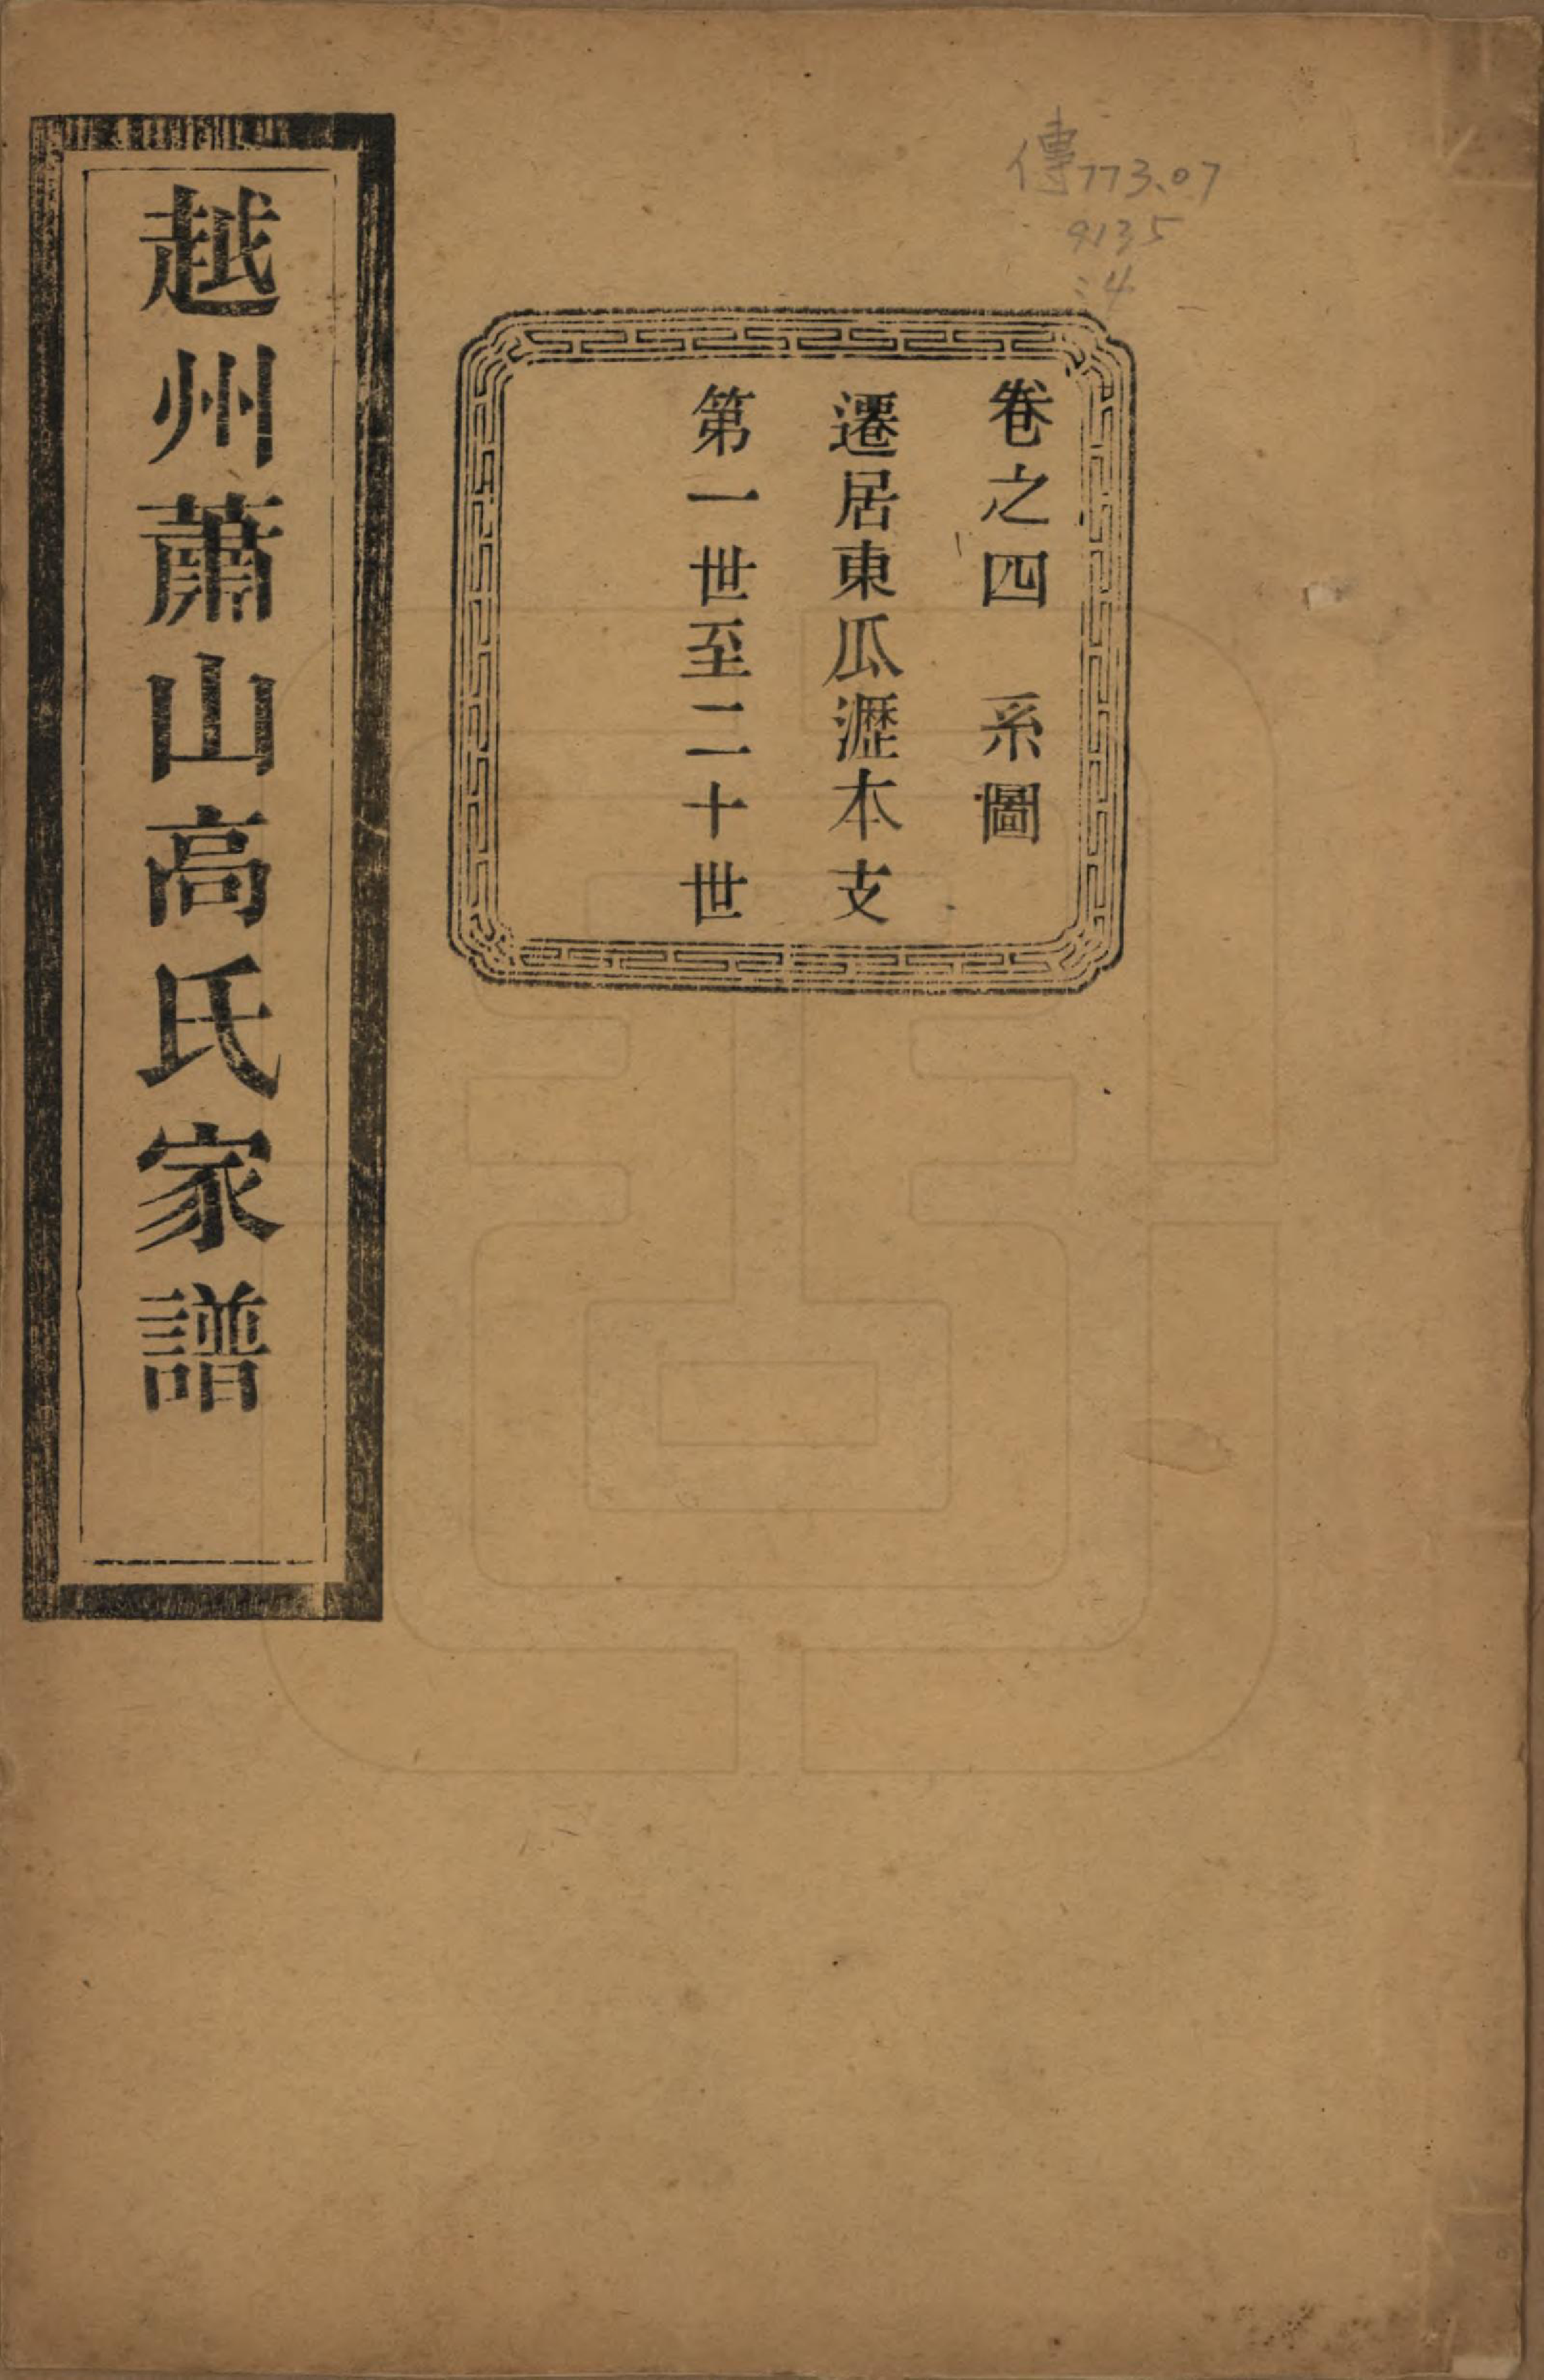 傳773.07
9135
:4
卷之四　系圖
遷居東瓜瀝本支
第一世至二十世
越州蕭山高氏家譜